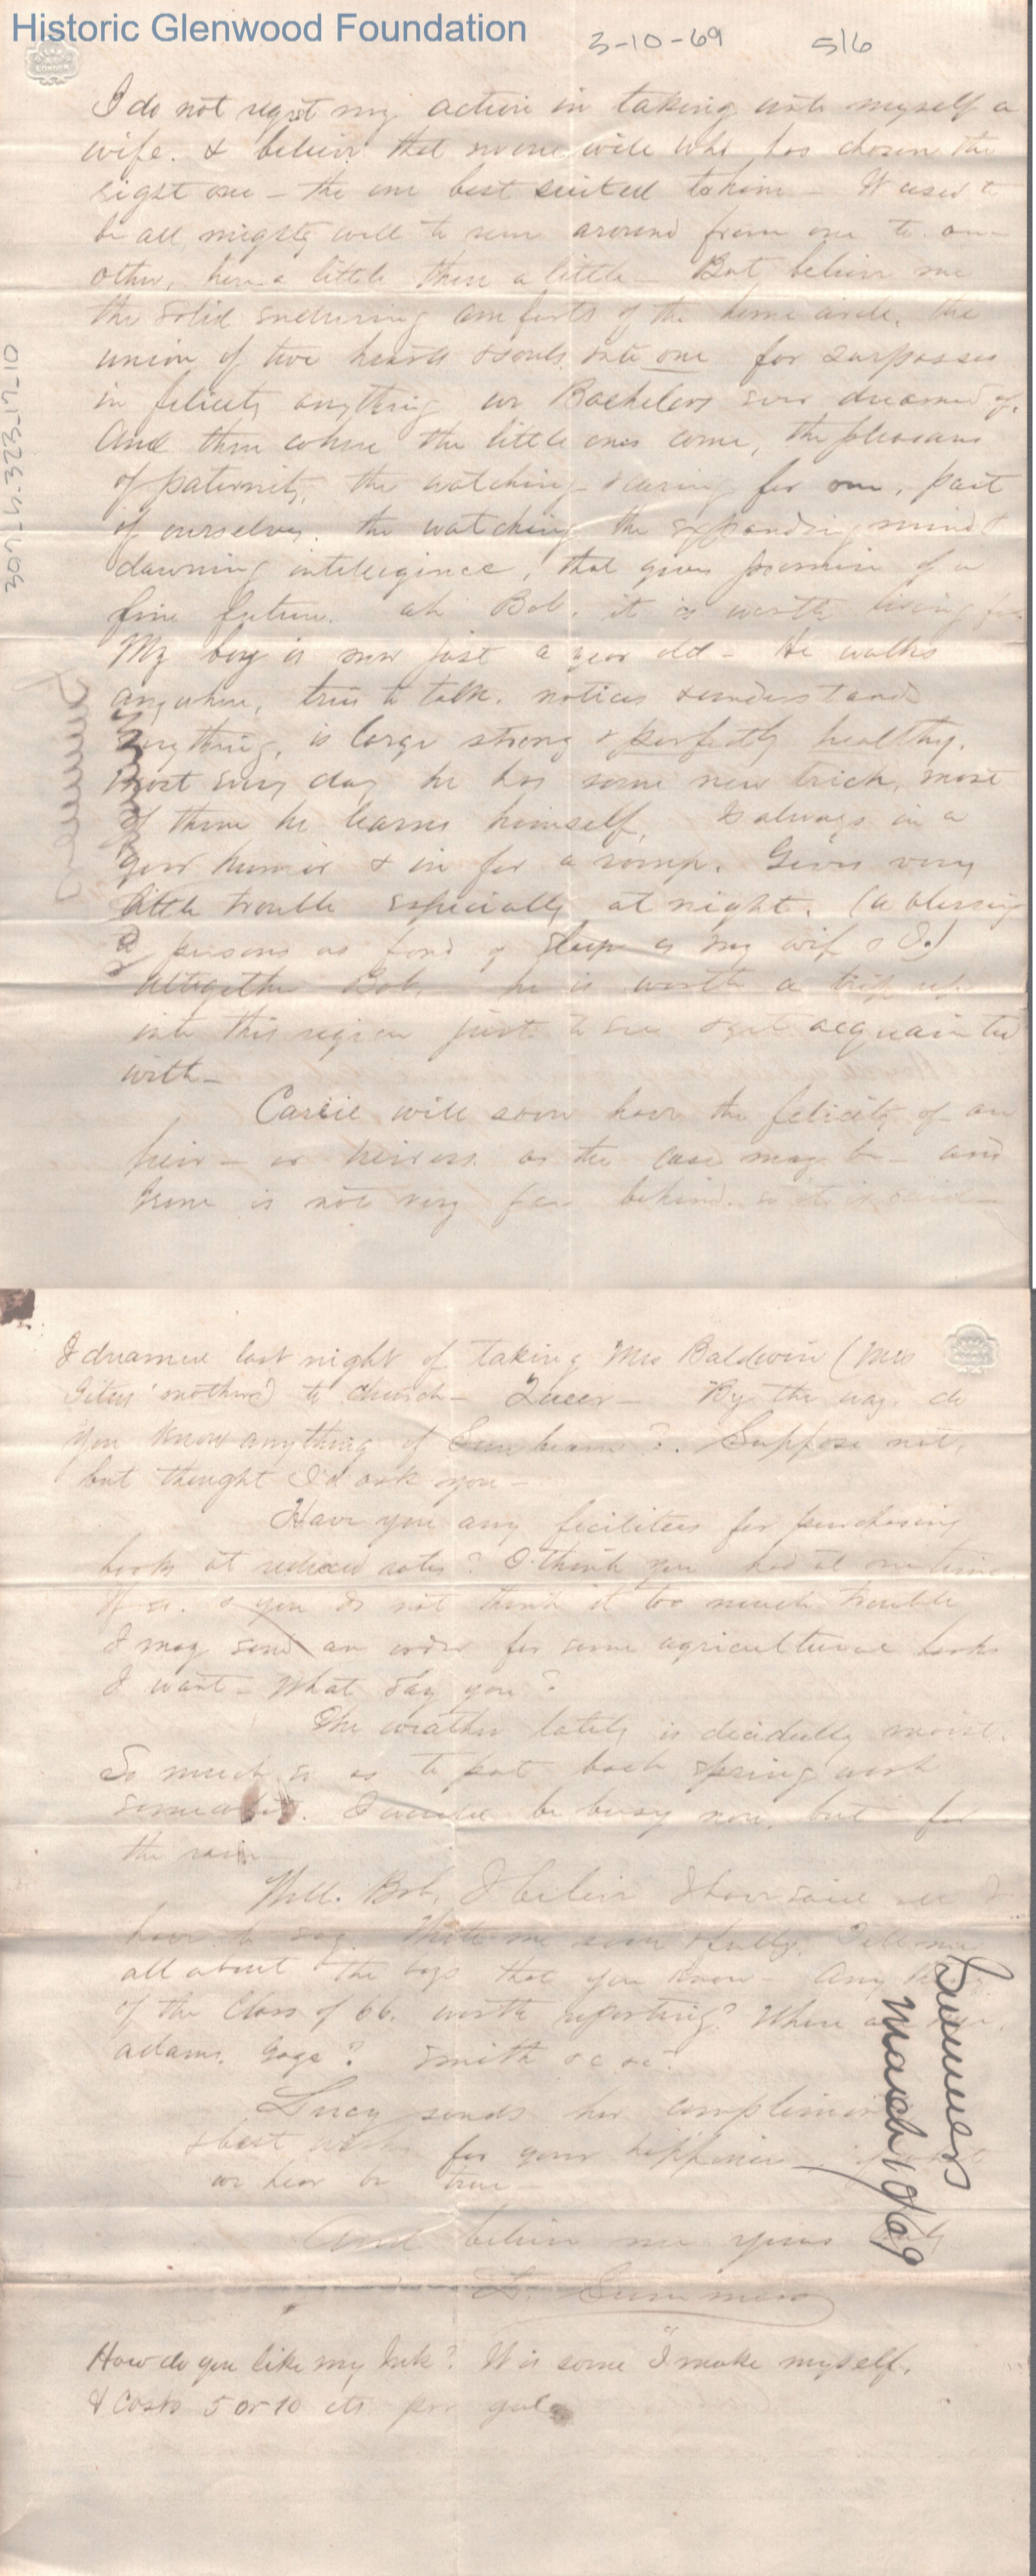 Historic Glenwood Foundation
3-10-69 5/6
I do not regret my action in taking unto myself a
wife. & believe that no one will who has chosen the
right one – the one best suited to him – It used to
be all mighty well to run around from one to an-
other, here a little there a little – But believe me
the solid enduring comforts of the home circle, the
union of two hearts & souls into one far surpasses
in felicity anything we Bachelors ever dreamed of.
And then when the little ones come, the pleasure
of paternity, the watching & caring for one, part
of ourselves. the watching the expanding mind &
dawning intelligence, that gives promise of a
fine future. ah Bob. it is worth living for
My boy is now just a year old – He walks
anywhere, tries to talk. notices & understands
everything, is large strong & perfectly healthy.
most every day he has some new trick, most
of them he learns himself, Is always in a
good humor & in for a romp. Gives very
little trouble especially at night. (a blessing
to persons as fond of sleep as my wife & I.)
Altogether Bob, he is worth a trip up
into this region just to see & get acquainted
with –
Carrie will soon have the felicity of an
heir – or heiress as the case may be – and
Irene is not very far behind. so it is said –
307_h.323_17_10
I dreamed last night of taking Mrs Baldwin (Mrs
mother) to church – Queer – By the way do
you know anything of ? Suppose not,
but thought I'd ask you –
Have you any facilities for purchasing
books at reduced rates? I think you had at one time
If so. & you do not think it too much trouble
I may send an order for some agricultural books
I want – What say you?
The weather lately is decidedly moist.
So much so as to put back spring work
somewhat. I would be busy now, but for
the rain –
Well. Bob, I believe I have said all I
have to say. Write me soon & fully. Tell me
all about the boys that you know – Any thing
of the Class of 66. worth reporting? Where are
Adams. Gage? Smith &c &c.
Lucy sends her compliments
& best wishes for your happiness – if what
we hear be true –
And believe me yours truly
L. Summers
Summers
March 10/69
How do you like my Ink? It is some I make myself.
& costs 5 or 10 cts per gal.